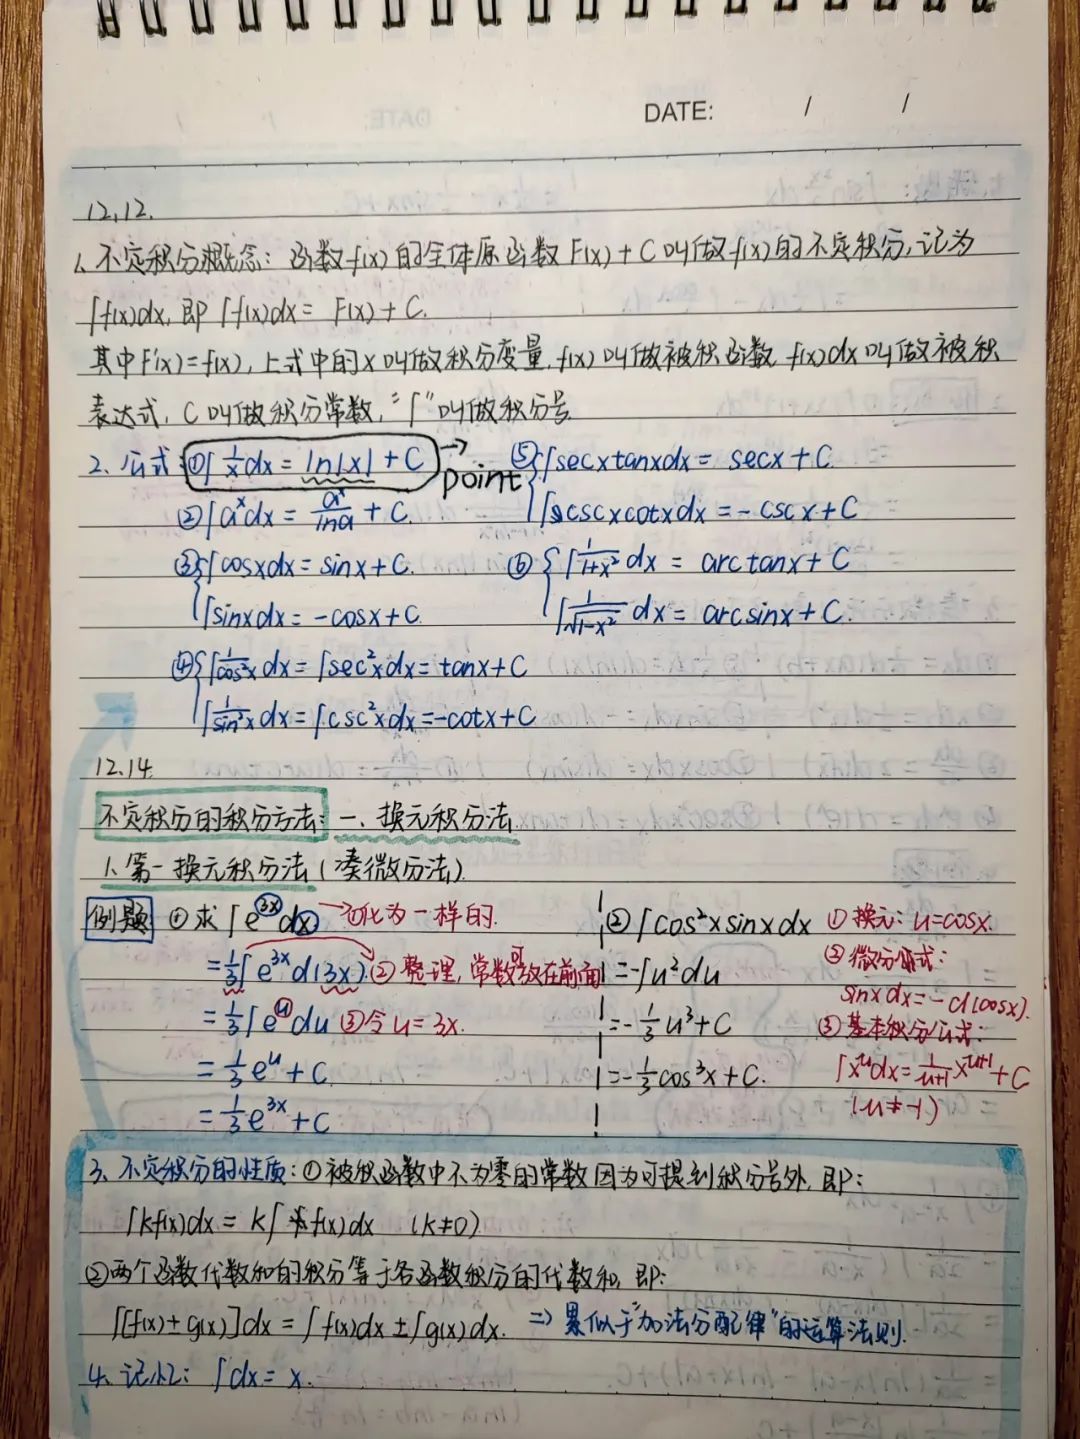 DATE: / /
12.12.
1、不定积分概念：函数f(x)的全体原函数F(x)+C叫做f(x)的不定积分,记为
∫f(x)dx, 即∫f(x)dx = F(x)+C.
其中F'(x)=f(x), 上式中的x叫做积分变量, f(x)叫做被积函数, f(x)dx叫做被积
表达式, C叫做积分常数, "∫"叫做积分号.
2、公式: ①∫1/x dx = ln|x| + C → point
②∫a^x dx = a^x/lna + C.
③{∫cosxdx = sinx + C.
∫sinxdx = -cosx + C.
④{∫1/cos²x dx = ∫sec²xdx = tanx + C
∫1/sin²x dx = ∫csc²xdx = -cotx + C
⑤{∫secxtanxdx = secx + C.
∫cscxcotxdx = -cscx + C
⑥{∫1/1+x² dx = arctanx + C
∫1/√1-x² dx = arcsinx + C.
12.14.
不定积分的积分方法: 一、换元积分法
1、第一换元积分法(凑微分法).
例题 ①求∫e^3x dx → ①化为一样的.
= 1/3∫e^3x d(3x) ②整理, 常数可放在前面
= 1/3∫e^u du ③令u=3x.
= 1/3 e^u + C.
= 1/3 e^3x + C
②∫cos²xsinxdx ①换元: u=cosx.
= -∫u²du ②微分形式:
sinxdx = -d(cosx).
= -1/3 u³ + C ③基本积分公式:
= -1/3 cos³x + C. ∫x^u dx = 1/u+1 x^u+1 + C
(u≠-1)
3、不定积分的性质: ①被积函数中不为零的常数因为可提到积分号外, 即:
∫kf(x)dx = k∫f(x)dx (k≠0)
②两个函数代数和的积分等于各函数积分的代数和, 即:
∫[f(x)±g(x)]dx = ∫f(x)dx ± ∫g(x)dx. ⇒ 累似于"加法分配律"的运算法则.
4、记忆: ∫dx = x.